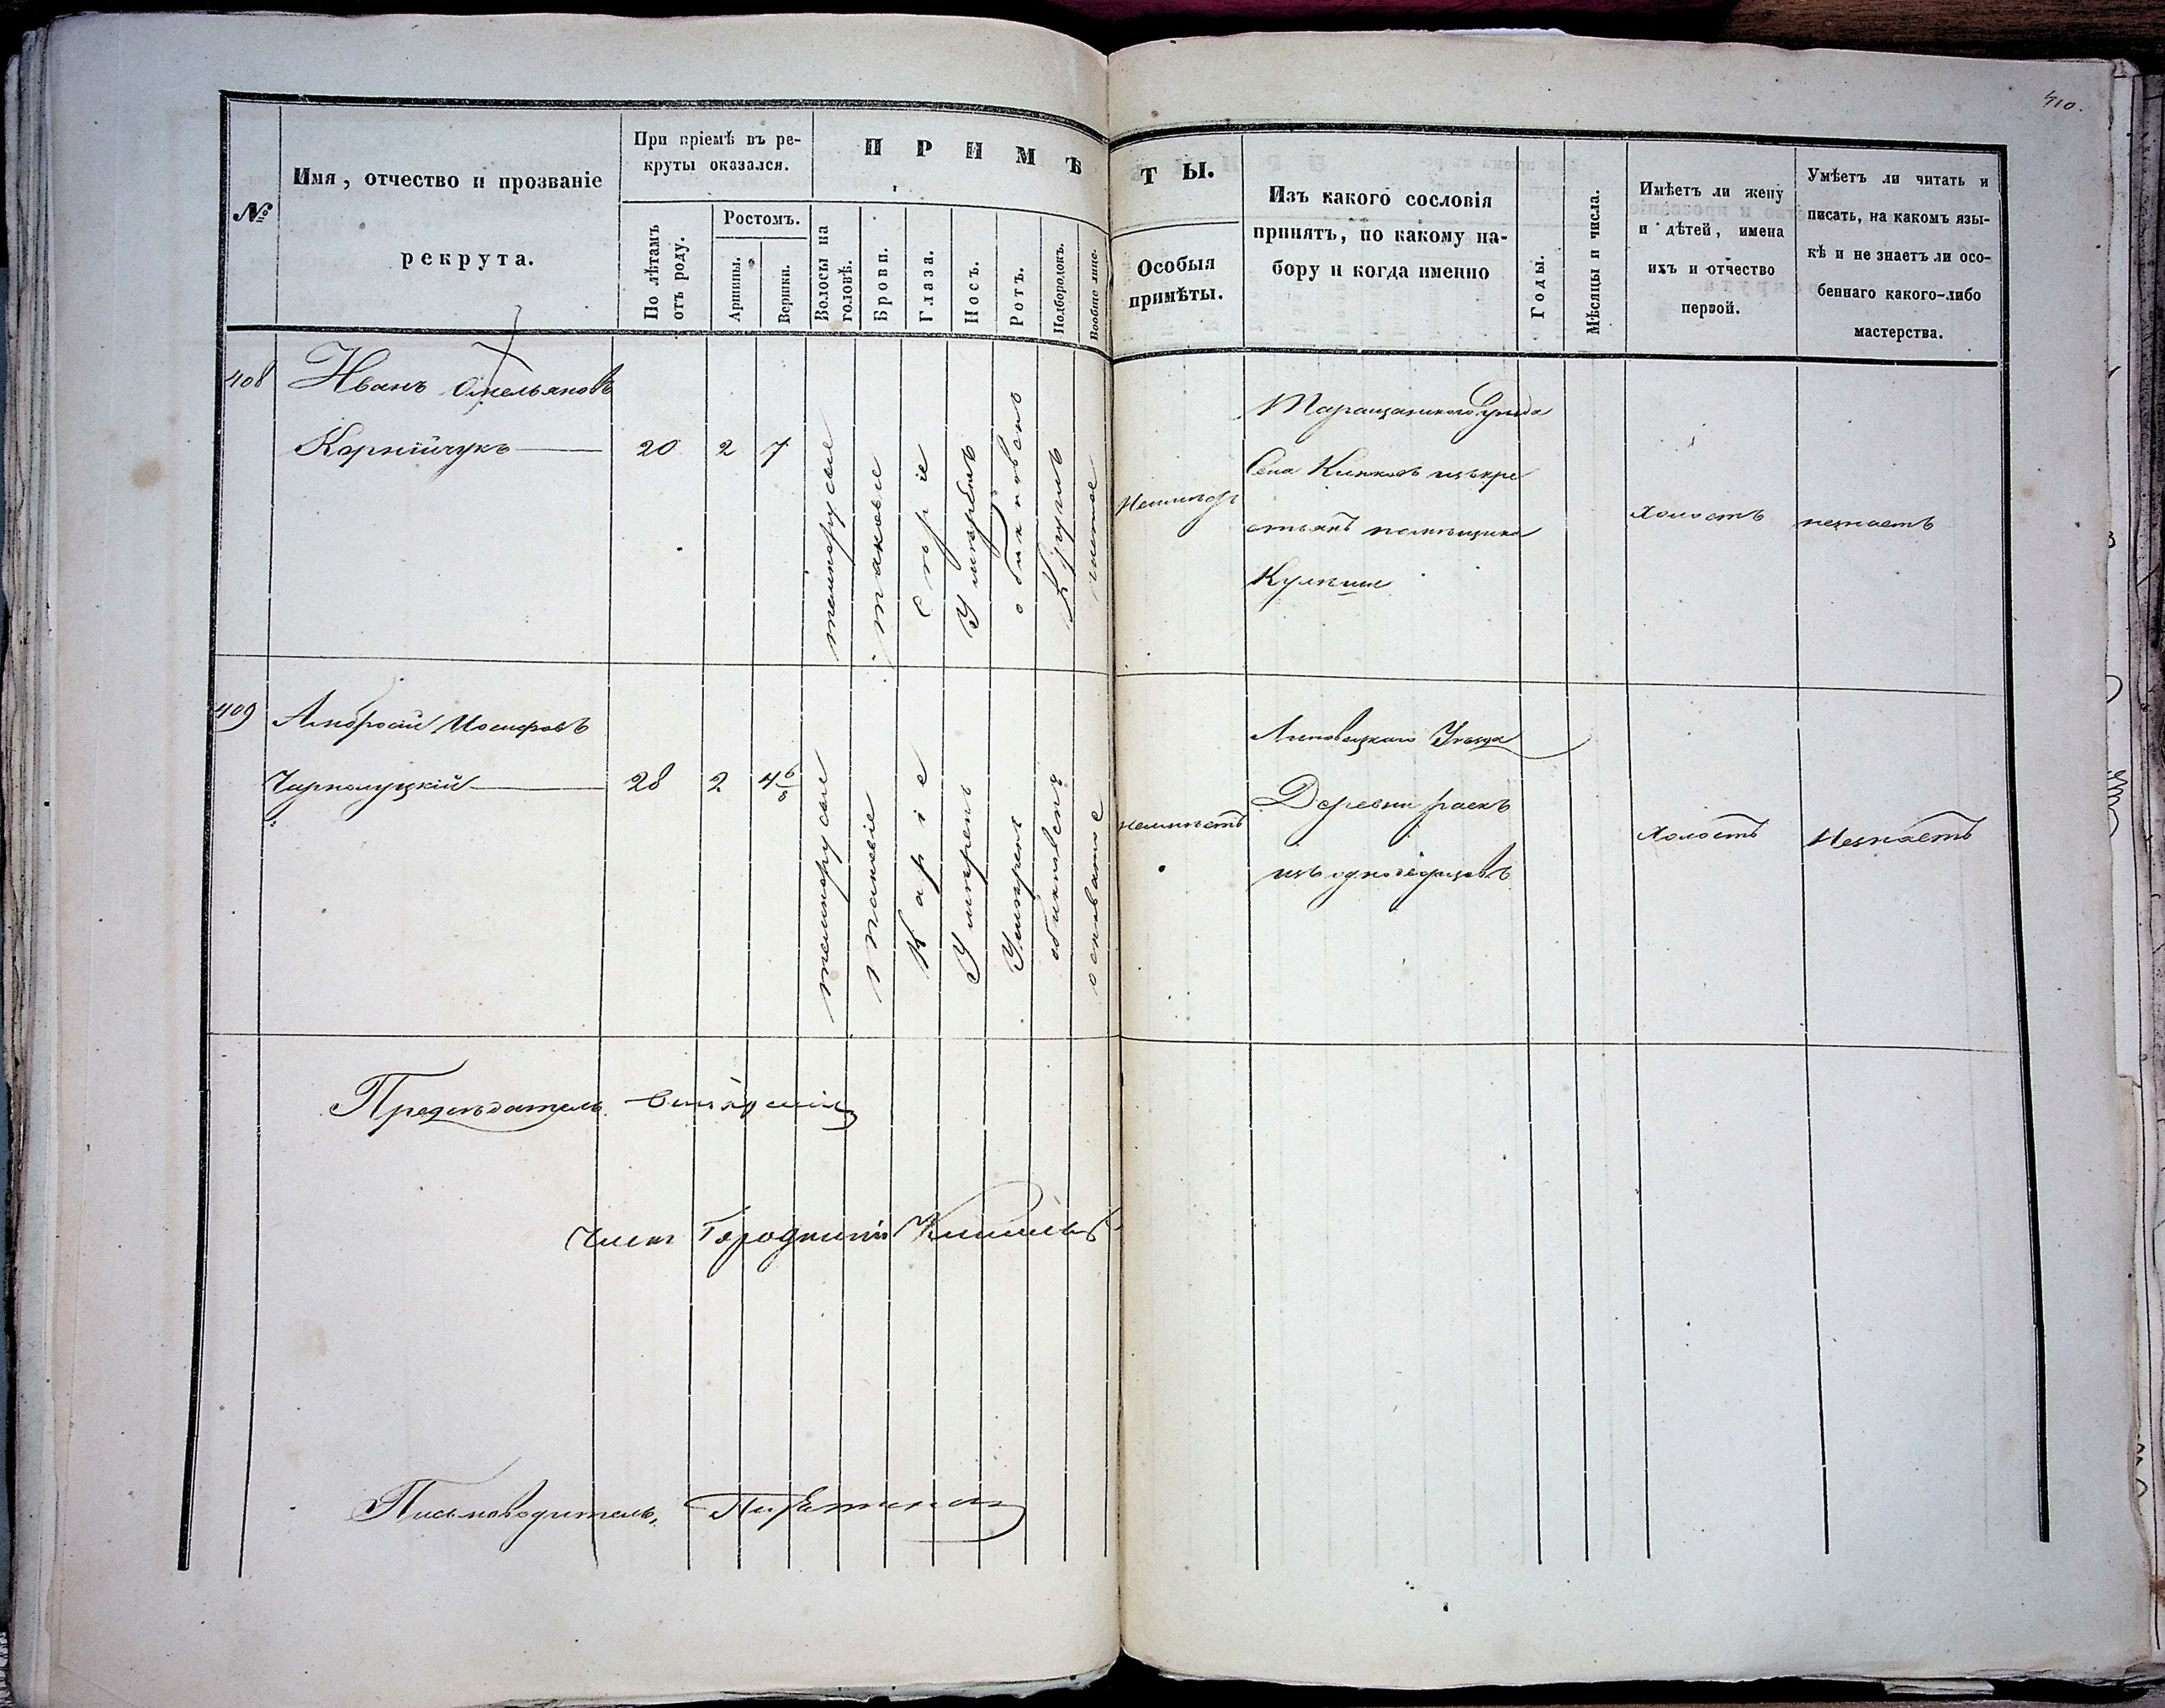 410.
№
Имя, отчество и прозваніе
рекрута.
При пріемѣ въ ре-
круты оказался.
По лѣтамъ
отъ роду.
Ростомъ.
Аршины.
Вершки.
ПРИМѢ
Волосы на
головѣ.
Брови.
Глаза.
Носъ.
Ротъ.
Подбородокъ.
Вообще лице.
ТЫ.
Особыя
примѣты.
Изъ какого сословія
принятъ, по какому на-
бору и когда именно
Годы.
Мѣсяцы и числа.
Имѣетъ ли жену
и дѣтей, имена
ихъ и отчество
первой.
Умѣетъ ли читать и
писать, на какомъ язы-
кѣ и не знаетъ ли осо-
беннаго какого-либо
мастерства.
408
Иванъ Омельяновъ
Корнійчукъ
20
2
7
темнорусые
таковые
Сѣрые
Умѣренъ
обыкновенъ
Круглъ
чистое
Таращанского Уѣзда
Села изъ кре
стьянъ помѣщика
холостъ
незнаетъ
409
Амбросій Іосифовъ
28
2
4 6/8
темнорусые
таковые
Каріе
Умѣренъ
Умѣренъ
обыкновенъ
осповатое
неимѣетъ
Липовецкаго Уѣзда
Деревни
изъ однодворцовъ
холостъ
Незнаетъ
Предсѣдатель
Членъ Городничій
Письмоводитель,